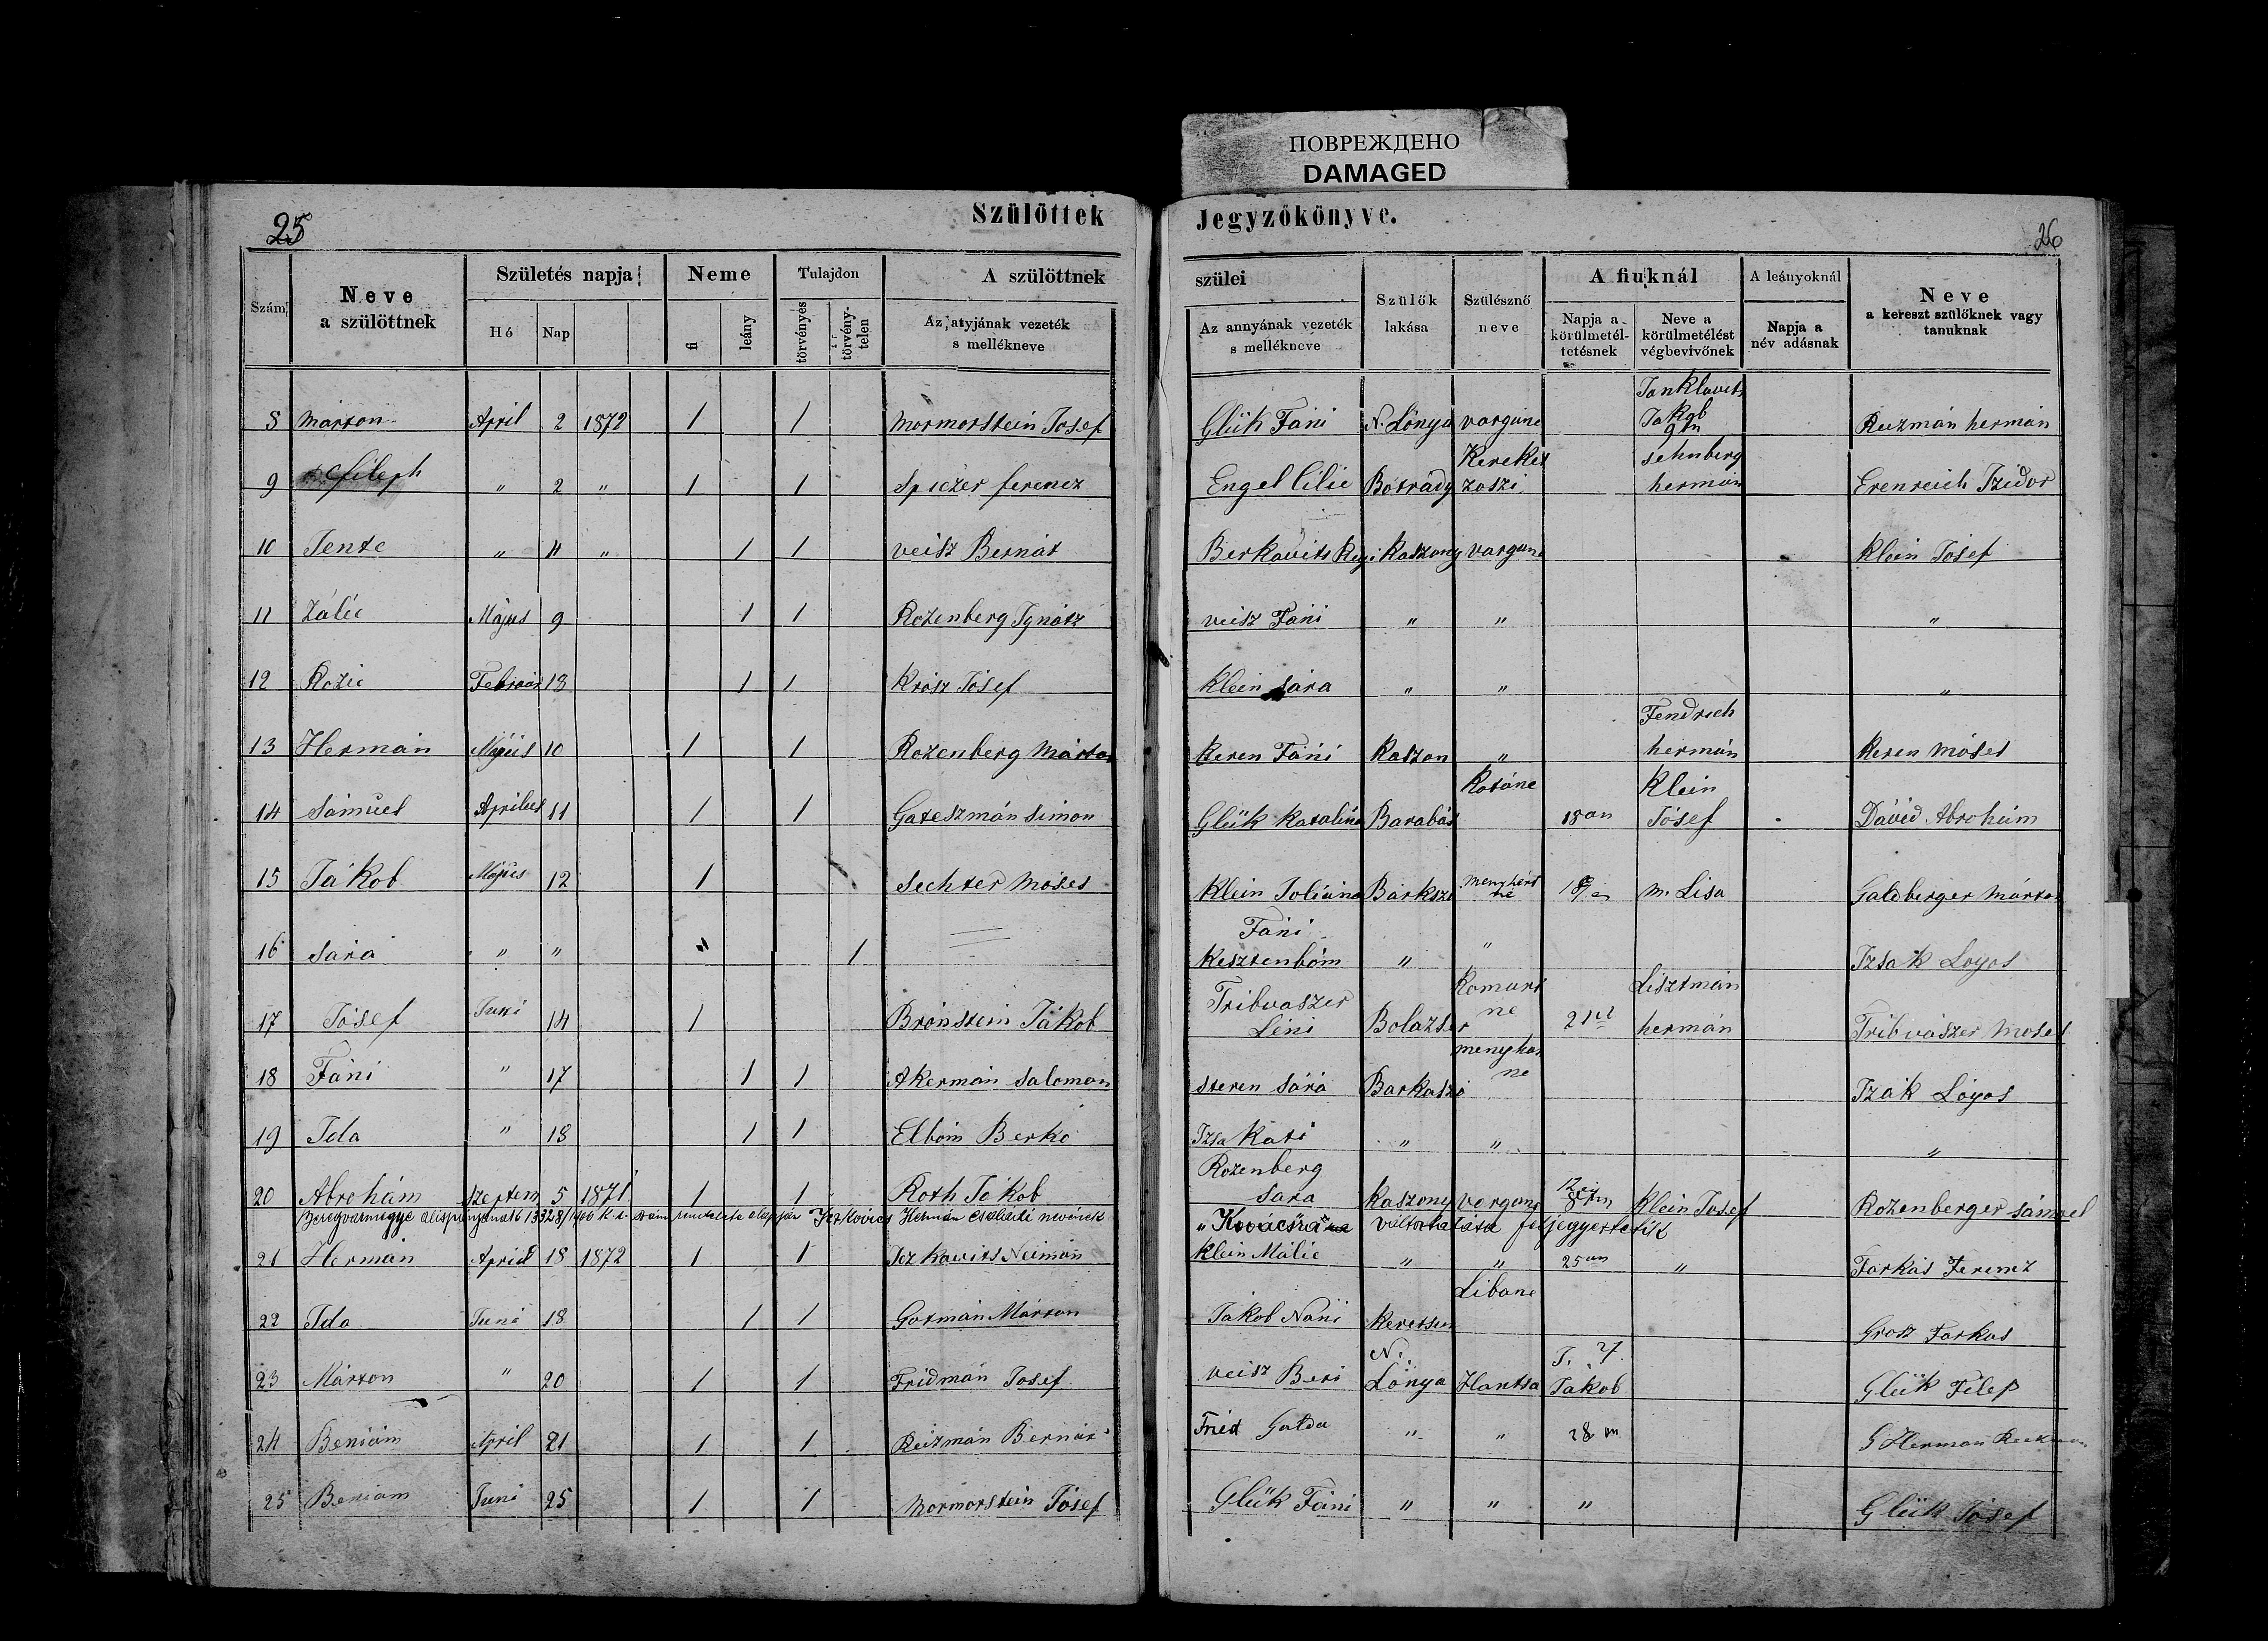 ПОВРЕЖДЕНО
DAMAGED
25
Szülöttek
Jegyzőkönyve.
26
Szám
Neve a szülöttnek
Születés napja
Hó
Nap
Neme
fi
leány
Tulajdon
törvényes
törvény-telen
A szülöttnek
Az atyjának vezeték s mellékneve
szülei
Az annyának vezeték s mellékneve
Szülők lakása
Szülésznő neve
A fiuknál
Napja a körülmetél-tetésnek
Neve a körülmetélést végbevivőnek
A leányoknál
Napja a név adásnak
Neve a kereszt szülőknek vagy tanuknak
8 Márton April 2 1872 1 1 Mormorstein Josef Glük Fáni N. Lónya vargáne Jakob Ruzmán hermán
9 Fileph " 2 " 1 1 Spiczer ferencz Engel Cilie Bótrády Kereket zoszi hermán Erenreich Izidor
10 Tente " 4 " 1 1 veisz Bernát Berkovits Regi Kaszony vargáne Klein Jósef
11 Zálii Május 9 1 1 Rozenberg Ignátz veisz Fáni " " "
12 Rozii Febroár 18 1 1 Krósz Jósef Klein sára " " "
13 Hermán Május 10 1 1 Rozenberg Márton Keren Fáni Kaszon " Fendrich hermán Keren Móses
14 Sámuel Április 11 1 1 Gateszmán simon Glük Katalina Barabás Kotáne 18an Klein Jósef Dávid Abrohám
15 Jákob Május 12 1 Sechter Móses Klein Joliána Barkszo 18 m. Lisa Galdberger Márton
16 sára " " " 1 Fáni Kesztenbóm " " Izsak Loyos
17 Jósef Juni 14 1 Brónstein Jákob Tribvaszer Léni Bolazser Komuri ne 21 Lisztmán hermán Tribvászer Moses
18 Fáni " 17 1 1 Akermán Saloman steren Sára Barkaszo ne Izák Lóyos
19 Ida " 18 1 1 Elbóim Berko Izsa Kati " " "
20 Abrohám szeptem 5 1871 1 1 Roth Jákob Rozenberg sara Kaszony vargáne Klein Josef Rozenberger sámuel
Beregvármegye alispánjának 13328/ k. i. szám rendelete alapján Iczkovics Hermán családi nevének
"Kovács"ra változtatása feljegyeztetik
21 Hermán April 18 1872 1 1 Icz Kovits Neimán Klein Málie " " 25 an " Farkas Ferencz
22 Ida Juni 18 1 1 Gotmán Márton Jákob Náni Keretsen Libane Grosz Farkas
23 Márton " 20 1 1 Fridmán Josef veisz Beri N. Lónya Hantsa J. 27. Jákob Glük Filep
24 Beniám April 21 1 1 Reizmán Bernát Fried Galda " " 28 an G Herman
25 Beniam Juni 25 1 1 Mormorstein Jósef Glük Fáni " " " Glük Jósef